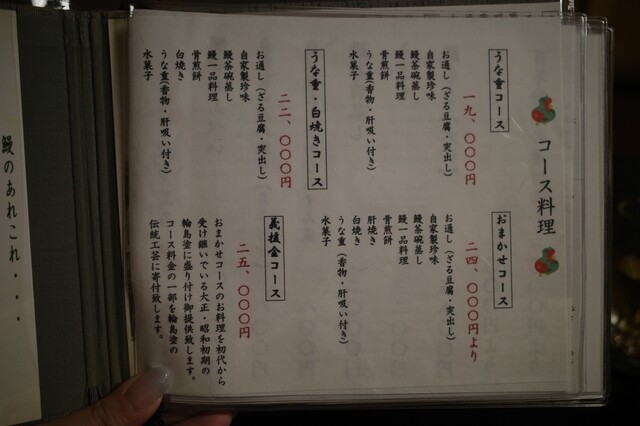 コース料理
うな重コース
一九、〇〇〇円
お通し(ざる豆腐・突出し)
自家製珍味
鰻茶碗蒸し
鰻一品料理
骨煎餅
うな重(香物・肝吸い付き)
水菓子
うな重・白焼きコース
二二、〇〇〇円
お通し(ざる豆腐・突出し)
自家製珍味
鰻茶碗蒸し
鰻一品料理
骨煎餅
白焼き
うな重(香物・肝吸い付き)
水菓子
おまかせコース
二四、〇〇〇円より
お通し(ざる豆腐・突出し)
自家製珍味
鰻茶碗蒸し
鰻一品料理
骨煎餅
肝焼き
白焼き
うな重(香物・肝吸い付き)
水菓子
義援金コース
二五、〇〇〇円
おまかせコースのお料理を初代から
受け継いでいる大正・昭和初期の
輪島塗に盛り付け御提供致します。
コース料金の一部を輪島塗の
伝統工芸に寄付致します。
鰻のあれこれ・・・